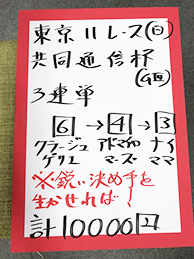 東京11レース(日)
共同通信杯
(GⅢ)
3連単
6→4→3
クラージュ アドマイヤ ナイ
ゲリエ マーズ ママ
※鋭い決め手を
生かせれば!
計10000円